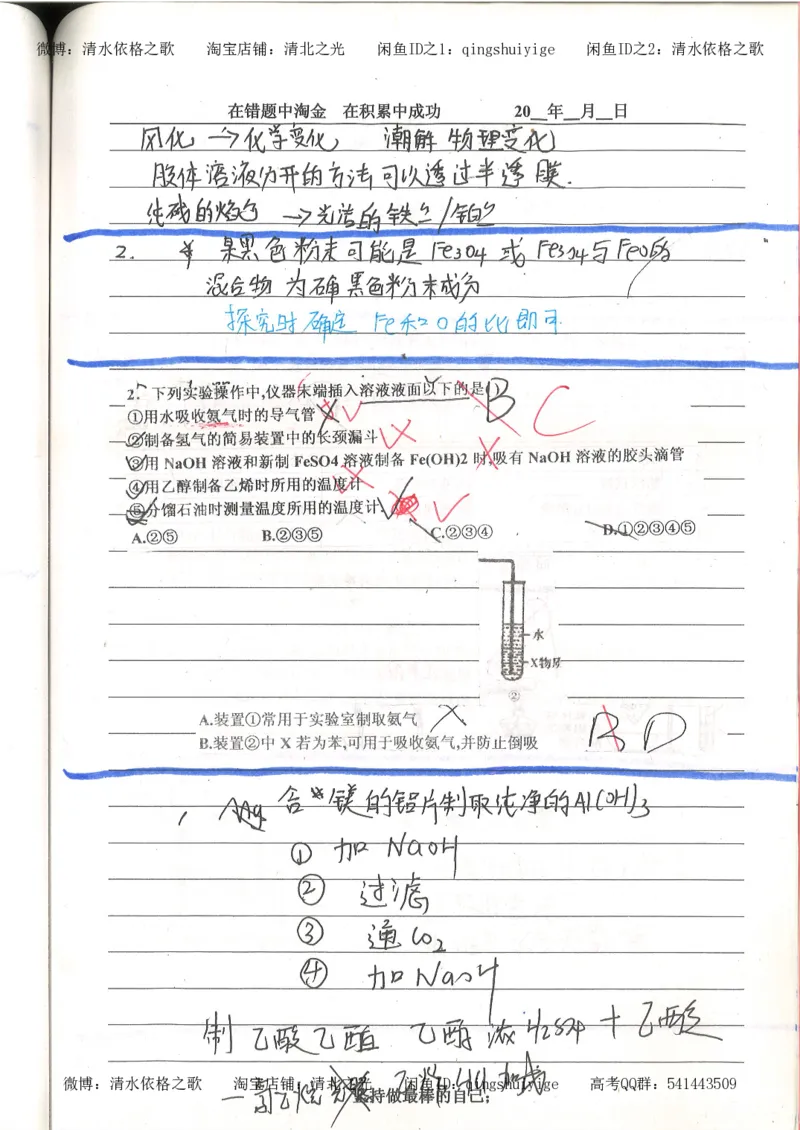 微博：清水依格之歌 淘宝店铺：清北之光 闲鱼ID之1：qingshuiyige 闲鱼ID之2：清水依格之歌
在错题中淘金 在积累中成功 20__年__月__日
风化 →化学变化 潮解 物理变化
胶体 溶液分开的方法可以透过半透膜.
纯碱的焰色 →光洁的铁丝/铂丝
2. 某黑色粉末可能是 Fe3O4 或 Fe3O4与FeO的
混合物 为确 黑色粉末成分
探究时 确定 Fe和O的比即可
2. 下列实验操作中,仪器末端插入溶液液面以下的是 B C
①用水吸收氨气时的导气管
②制备氢气的简易装置中的长颈漏斗
③用 NaOH 溶液和新制 FeSO4 溶液制备 Fe(OH)2 时,吸有 NaOH 溶液的胶头滴管
④用乙醇制备乙烯时所用的温度计
⑤分馏石油时测量温度所用的温度计.
A.②⑤ B.②③⑤ C.②③④ D.①②③④⑤
水
X物质
②
A.装置①常用于实验室制取氨气
B.装置②中 X 若为苯,可用于吸收氨气,并防止倒吸 B D
含 镁 的铝片制取纯净的Al(OH)3
① 加 NaOH
② 过滤
③ 通 CO2
④ 加 NaOH
制 乙酸乙酯 乙醇 浓H2SO4 + 乙酸
微博：清水依格之歌 淘宝店铺：清北之光 闲鱼ID：qingshuiyige 高考QQ群：541443509
坚持做最棒的自己；